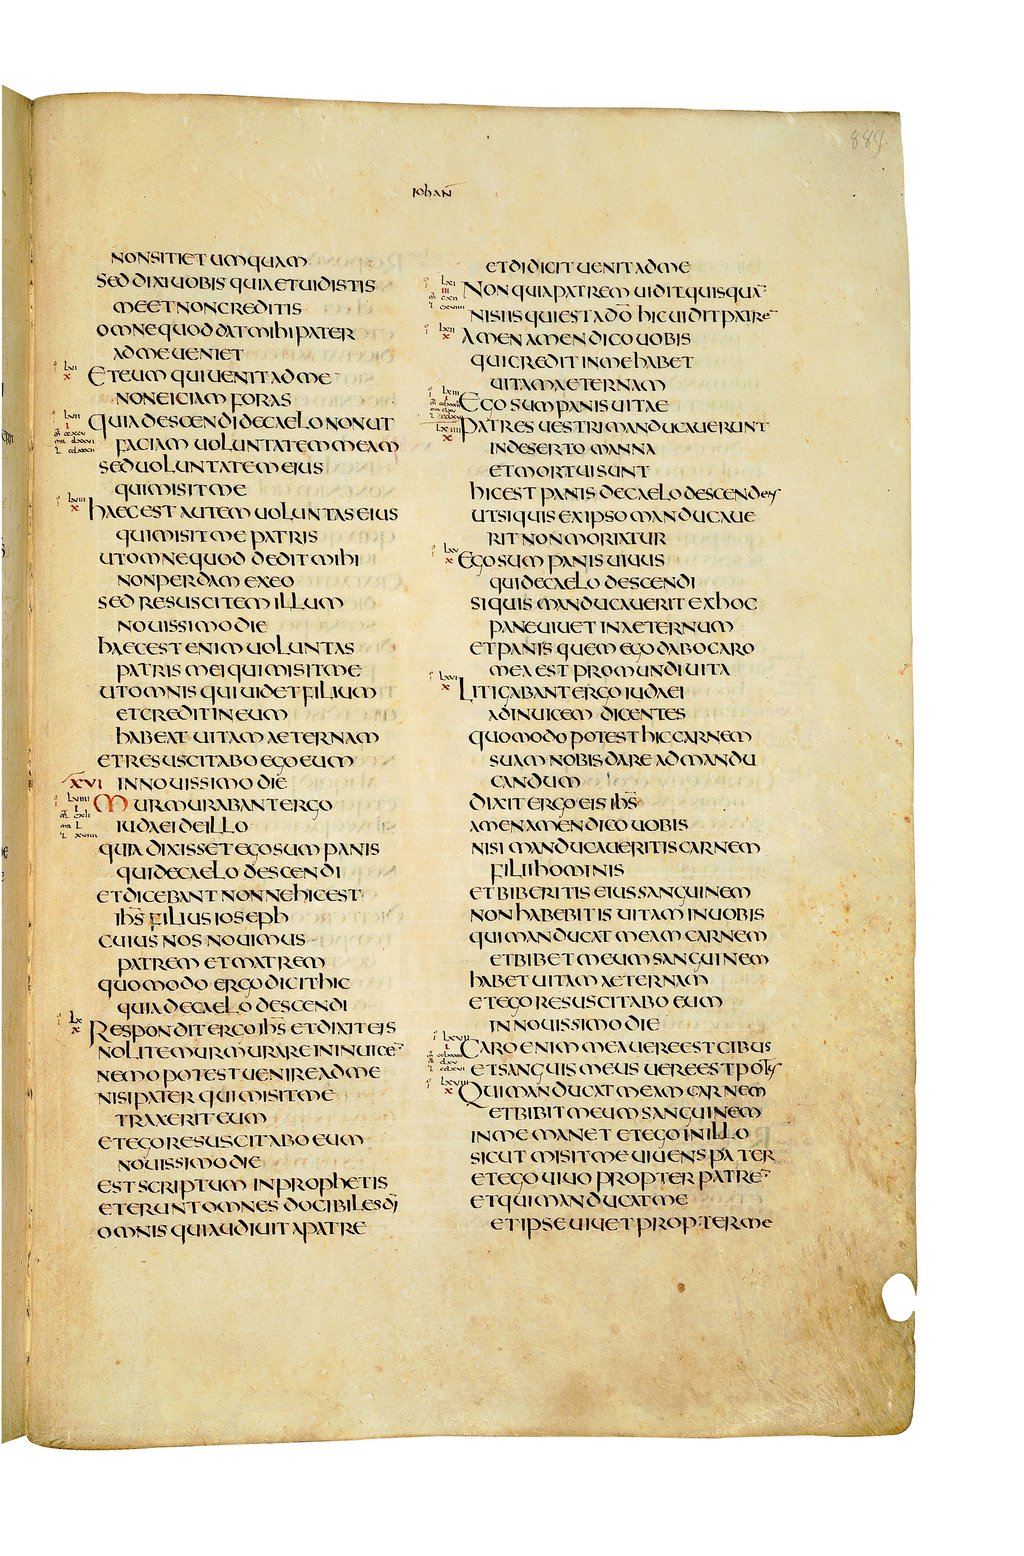 889
iohaN̄
NONSITIET UMQUAM
SED DIXI UOBIS QUIA ET UIDISTIS
ME ET NON CREDITIS
OMNE QUOD DAT MIHI PATER
AD ME UENIET
ET EUM QUI UENIT AD ME
NON EICIAM FORAS
QUIA DESCENDI DE CAELO NON UT
FACIAM UOLUNTATEM MEAM
SED UOLUNTATEM EIUS
QUI MISIT ME
HAEC EST AUTEM UOLUNTAS EIUS
QUI MISIT ME PATRIS
UT OMNE QUOD DEDIT MIHI
NON PERDAM EX EO
SED RESUSCITEM ILLUM
NOUISSIMO DIE
HAEC EST ENIM UOLUNTAS
PATRIS MEI QUI MISIT ME
UT OMNIS QUI UIDET FILIUM
ET CREDIT IN EUM
HABEAT UITAM AETERNAM
ET RESUSCITABO EGO EUM
XVI IN NOUISSIMO DIE
MURMURABANT ERGO
IUDAEI DE ILLO
QUIA DIXISSET EGO SUM PANIS
QUI DE CAELO DESCENDI
ET DICEBANT NONNE HIC EST
IH̄S FILIUS IOSEPH
CUIUS NOS NOUIMUS
PATREM ET MATREM
QUOMODO ERGO DICIT HIC
QUIA DE CAELO DESCENDI
RESPONDIT ERGO IH̄S ET DIXIT EIS
NOLITE MURMURARE IN INUICĒ
NEMO POTEST UENIRE AD ME
NISI PATER QUI MISIT ME
TRAXERIT EUM
ET EGO RESUSCITABO EUM
NOUISSIMO DIE
EST SCRIPTUM IN PROPHETIS
ET ERUNT OMNES DOCIBILES D̄I
OMNIS QUI AUDIUIT A PATRE
ET DIDICIT UENIT AD ME
NON QUIA PATREM UIDIT QUISQUĀ
NISI IS QUI EST A D̄O HIC UIDIT PATRĒ
AMEN AMEN DICO UOBIS
QUI CREDIT IN ME HABET
UITAM AETERNAM
EGO SUM PANIS UITAE
PATRES UESTRI MANDUCAUERUNT
IN DESERTO MANNA
ET MORTUI SUNT
HIC EST PANIS DE CAELO DESCENDENS
UT SI QUIS EX IPSO MANDUCAUE
RIT NON MORIATUR
EGO SUM PANIS UIUUS
QUI DE CAELO DESCENDI
SI QUIS MANDUCAUERIT EX HOC
PANE UIUET IN AETERNUM
ET PANIS QUEM EGO DABO CARO
MEA EST PRO MUNDI UITA
LITIGABANT ERGO IUDAEI
AD INUICEM DICENTES
QUOMODO POTEST HIC CARNEM
SUAM NOBIS DARE AD MANDU
CANDUM
DIXIT ERGO EIS IH̄S
AMEN AMEN DICO UOBIS
NISI MANDUCAUERITIS CARNEM
FILII HOMINIS
ET BIBERITIS EIUS SANGUINEM
NON HABEBITIS UITAM IN UOBIS
QUI MANDUCAT MEAM CARNEM
ET BIBET MEUM SANGUINEM
HABET UITAM AETERNAM
ET EGO RESUSCITABO EUM
IN NOUISSIMO DIE
CARO ENIM MEA UERE EST CIBUS
ET SANGUIS MEUS UERE EST POTUS
QUI MANDUCAT MEAM CARNEM
ET BIBIT MEUM SANGUINEM
IN ME MANET ET EGO IN ILLO
SICUT MISIT ME UIUENS PATER
ET EGO UIUO PROPTER PATRĒ
ET QUI MANDUCAT ME
ET IPSE UIUET PROPTER ME